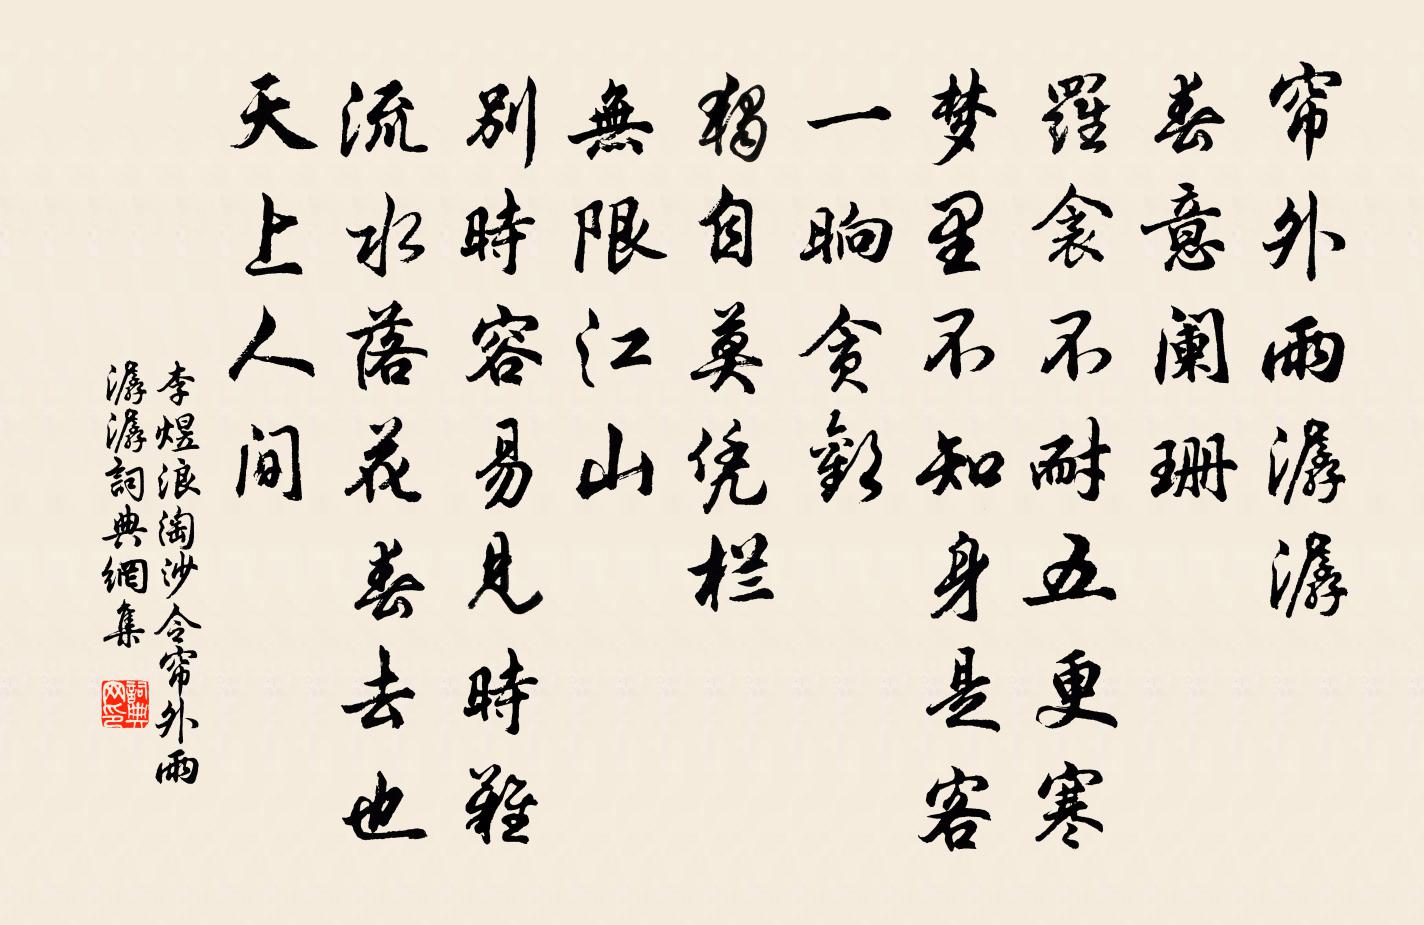 帘外雨潺潺
春意阑珊
羅衾不耐五更寒
梦里不知身是客
一晌貪歡
獨自莫凭栏
無限江山
別時容易見時難
流水落花春去也
天上人间
李煜浪淘沙令帘外雨
潺潺詞典網集
詞典网印